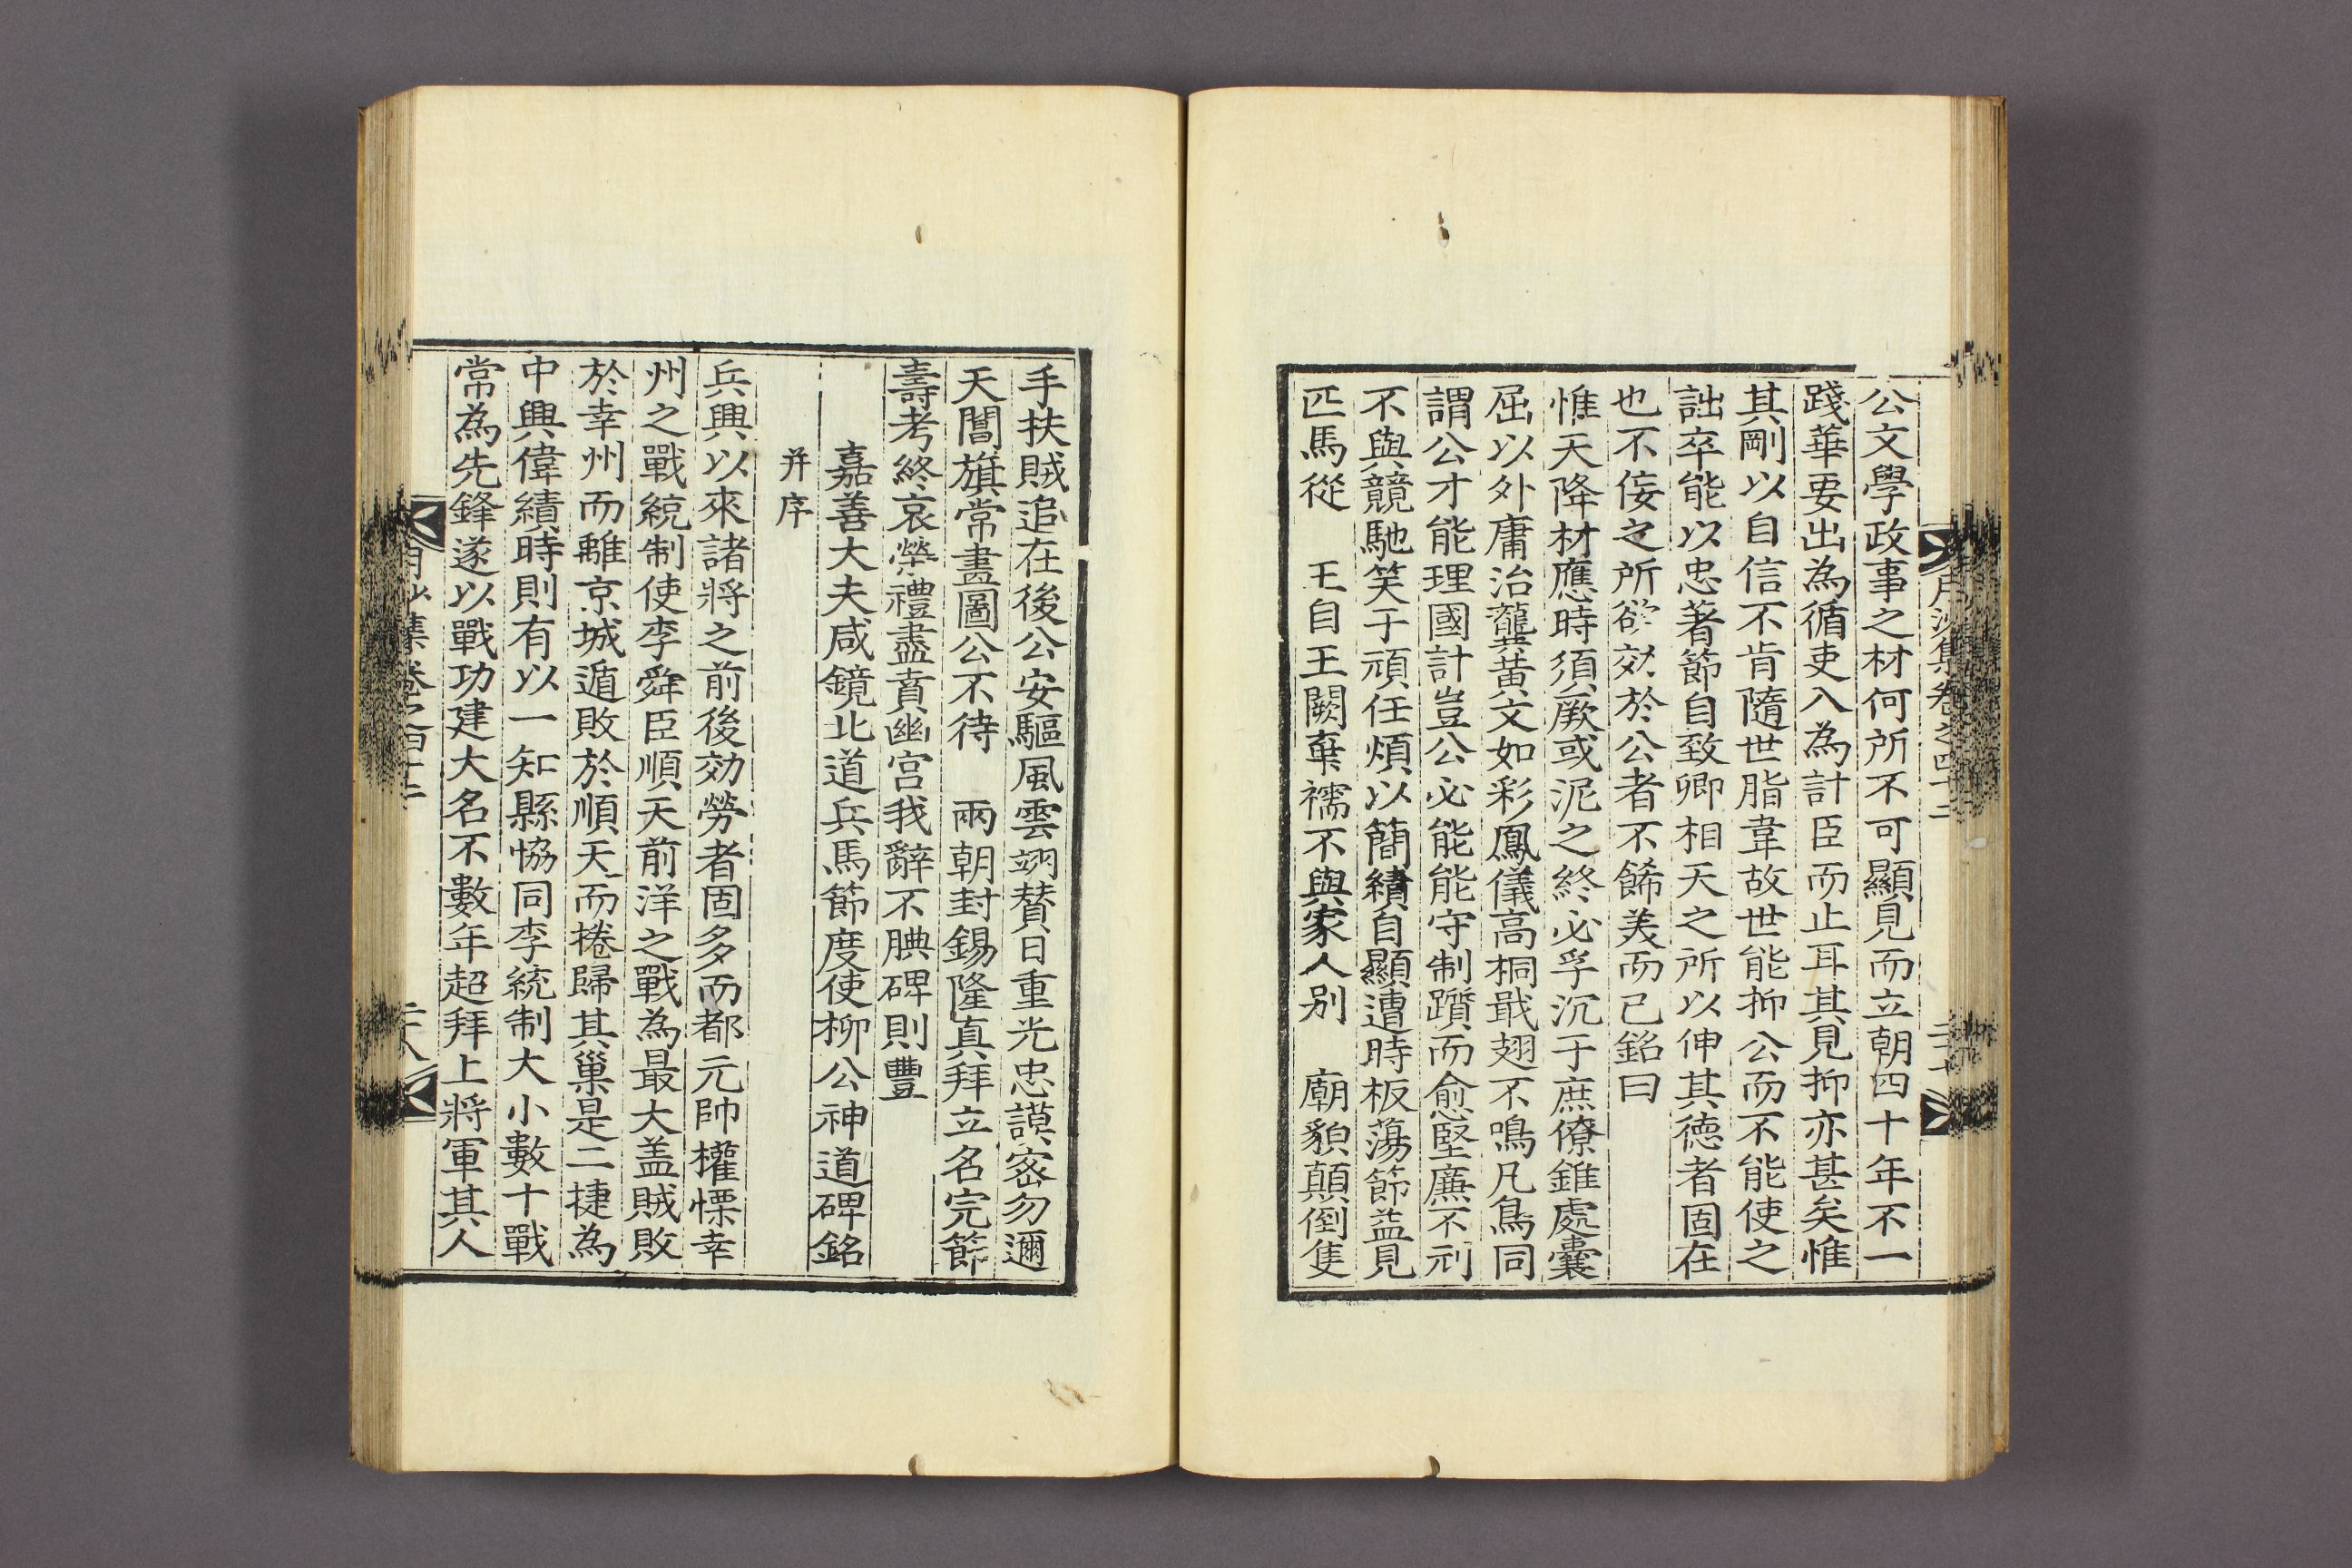 公文學政事之材何所不可顯見而立朝四十年不一
踐華要出為循吏入為計臣而止耳其見抑亦甚矣惟
其剛以自信不肯隨世脂韋故世能抑公而不能使之
詘卒能以忠著節自致卿相天之所以伸其德者固在
也不侫之所欲效於公者不餙美而已銘曰
惟天降材應時須厥或泥之終必孚沉于庶僚錐處囊
屈以外庸治龔黃文如彩鳳儀高桐戢翅不鳴凡鳥同
謂公才能理國計豈公必能能守制躓而愈堅廉不刓
不與競馳笑于頑任煩以簡績自顯遭時板蕩節益見
匹馬從　王自王闕棄襦不與家人別　廟貌顛倒隻
手扶賊追在後公安驅風雲翊贊日重光忠謨密勿邇
天閽旂常晝圖公不待　兩朝封錫隆真拜立名完節
壽考終哀榮禮盡賁幽宮我辭不腆碑則豐
嘉善大夫咸鏡北道兵馬節度使柳公神道碑銘
并序
兵興以來諸將之前後効勞者固多而都元帥權慄幸
州之戰統制使李舜臣順天前洋之戰為最大盖賊敗
於幸州而離京城遁敗於順天而捲歸其巢是二捷為
中興偉績時則有以一知縣恊同李統制大小數十戰
常為先鋒遂以戰功建大名不數年超拜上將軍其人